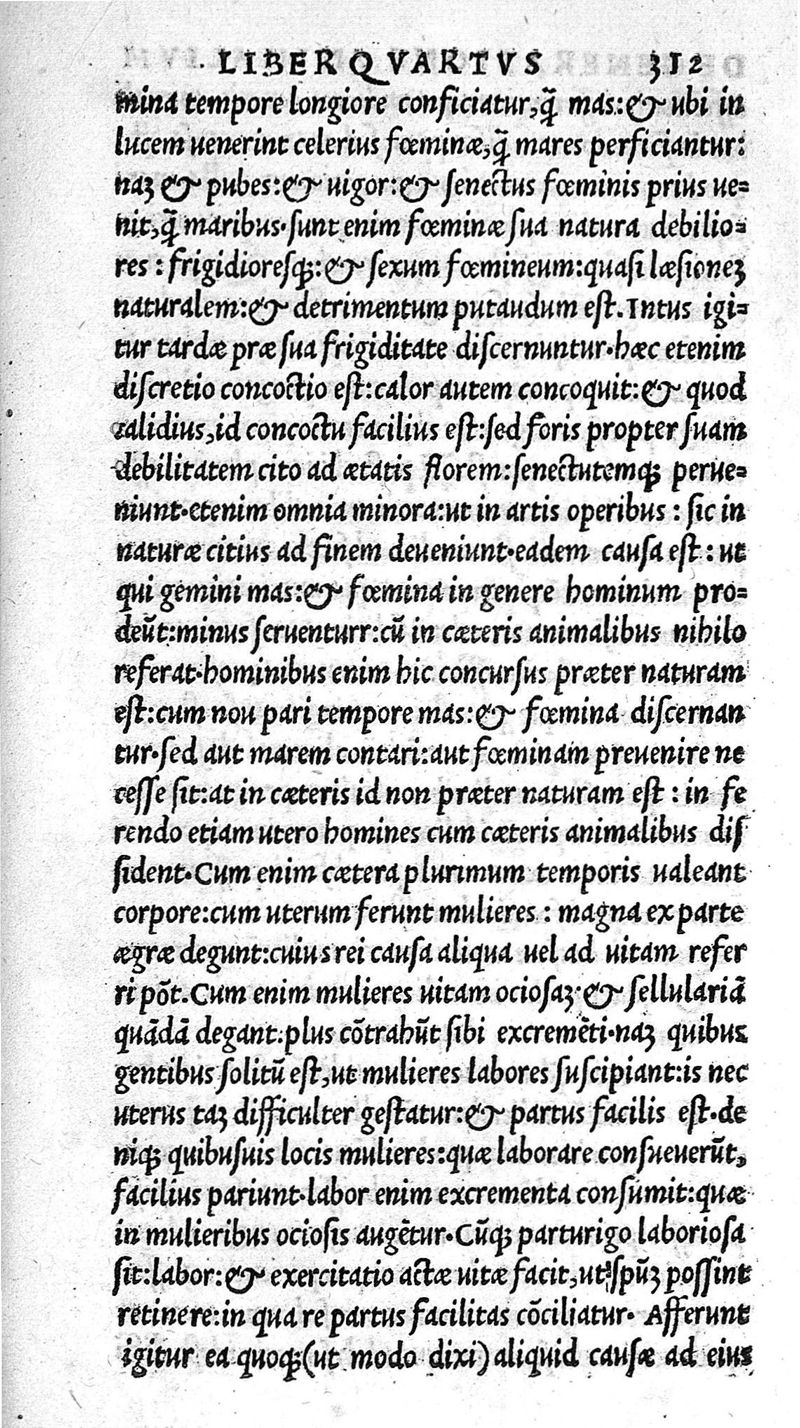 LIBER QVARTVS 312
mina tempore longiore conficiatur,q̃ mas:& ubi in
lucem uenerint celerius fœminæ,q̃ mares perficiantur:
naʒ & pubes:& uigor:& ſenectus fœminis prius ue=
nit,q̃ maribus·ſunt enim fœminæ ſua natura debilio=
res : frigidioreſqꝫ:& ſexum fœmineum:quaſi læſioneʒ
naturalem:& detrimentum putaudum eſt.Intus igi=
tur tardæ præ ſua frigiditate diſcernuntur·hæc etenim
diſcretio concoctio eſt:calor autem concoquit:& quod
calidius,id concoctu facilius eſt:ſed foris propter ſuam
debilitatem cito ad ætatis florem:ſenectutemqꝫ perue=
niunt·etenim omnia minora:ut in artis operibus : ſic in
naturæ citius ad finem deueniunt·eadem cauſa eſt : ut
qui gemini mas:& fœmina in genere hominum pro=
deũt:minus ſeruenturr:cũ in cæteris animalibus nihilo
referat·hominibus enim hic concurſus præter naturam
eſt:cum nou pari tempore mas:& fœmina diſcernan
tur·ſed aut marem contari:aut fœminam preuenire ne
ceſſe ſit:at in cæteris id non præter naturam eſt : in fe
rendo etiam utero homines cum cæteris animalibus diſ
ſident·Cum enim cætera plurimum temporis ualeant
corpore:cum uterum ferunt mulieres : magna ex parte
ægræ degunt:cuius rei cauſa aliqua uel ad uitam refer
ri põt.Cum enim mulieres uitam ocioſaʒ·& ſellulariã
quãdã degant:plus cõtrahũt ſibi excremẽti·naʒ quibus
gentibus ſolitũ eſt,ut mulieres labores ſuſcipiant:is nec
uterus taʒ difficulter geſtatur:& partus facilis eſt·de
niqꝫ quibuſuis locis mulieres:quæ laborare conſueuerũt,
facilius pariunt·labor enim excrementa conſumit:quæ
in mulieribus ocioſis augẽtur·Cũqꝫ parturigo laborioſa
ſit:labor:& exercitatio actæ uitæ facit,ut ſpũʒ poſſint
retinere:in qua re partus facilitas cõciliatur· Afferunt
igitur ea quoqꝫ(ut modo dixi)aliquid cauſæ ad eius